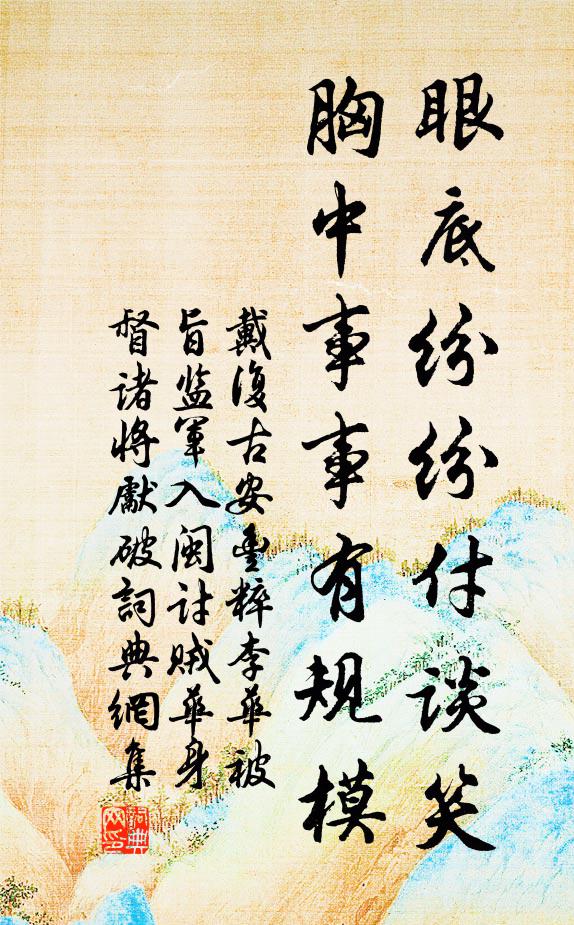 眼底纷纷付谈笑
胸中事事有规模
戴復古安豐粹李華被
旨监軍入闽討贼華身
督诸将處破詞典網集
詞典